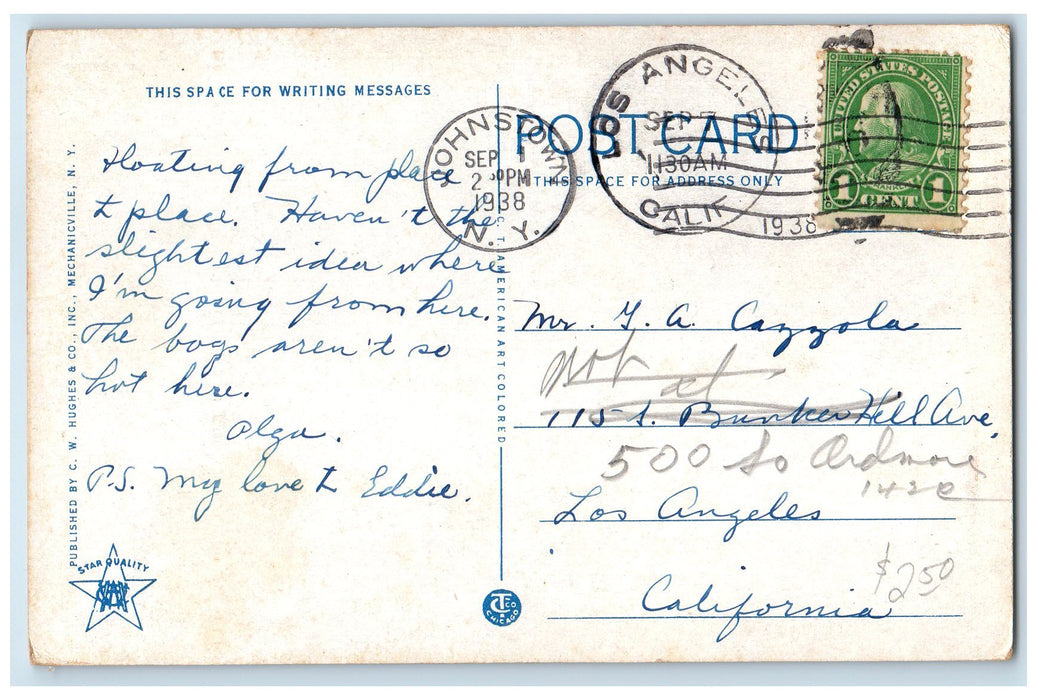 THIS SPACE FOR WRITING MESSAGES
POST CARD
THIS SPACE FOR ADDRESS ONLY
JOHNSTOWN
SEP 1
2 30 PM
1938
N. Y.
LOS ANGELES
SEP 7
1130 AM
CALIF
1938
UNITED STATES POSTAGE
1 1
CENT
Floating from place
to place. Haven't the
slightest idea where
I'm going from here.
The boys aren't so
hot here.
Olga.
P.S. My love to Eddie.
Mr. T. A. Cazzola
not at
115 S. Bunker Hill Ave,
500 So Ardmore
Los Angeles
California
$2.50
PUBLISHED BY C. W. HUGHES & CO., INC., MECHANICVILLE, N. Y.
C. T. AMERICAN ART COLORED
STAR QUALITY
CT CO
CHICAGO